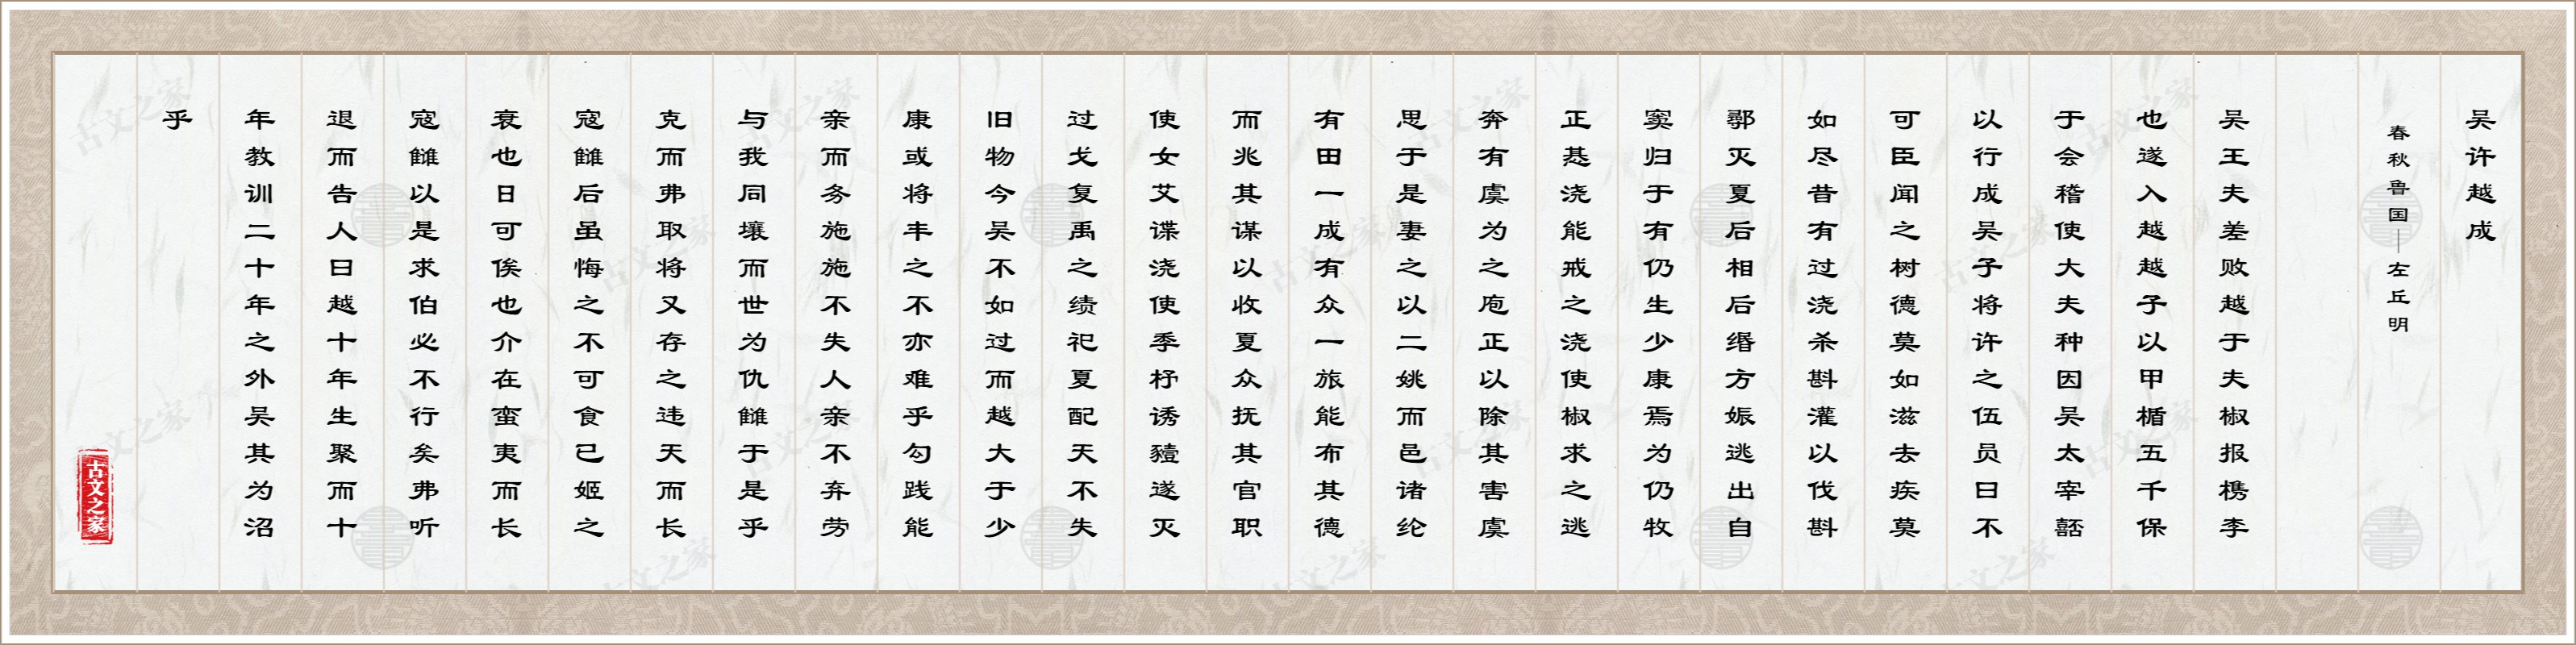 吴许越成
春秋鲁国—左丘明
吴王夫差败越于夫椒报槜李
也遂入越越子以甲楯五千保
于会稽使大夫种因吴太宰嚭
以行成吴子将许之伍员曰不
可臣闻之树德莫如滋去疾莫
如尽昔有过浇杀斟灌以伐斟
鄩灭夏后相后缗方娠逃出自
窦归于有仍生少康焉为仍牧
正惎浇能戒之浇使椒求之逃
奔有虞为之庖正以除其害虞
思于是妻之以二姚而邑诸纶
有田一成有众一旅能布其德
而兆其谋以收夏众抚其官职
使女艾谍浇使季杼诱豷遂灭
过戈复禹之绩祀夏配天不失
旧物今吴不如过而越大于少
康或将丰之不亦难乎勾践能
亲而务施施不失人亲不弃劳
与我同壤而世为仇雠于是乎
克而弗取将又存之违天而长
寇雠后虽悔之不可食已姬之
衰也日可俟也介在蛮夷而长
寇雠以是求伯必不行矣弗听
退而告人曰越十年生聚而十
年教训二十年之外吴其为沼
乎
古文之家